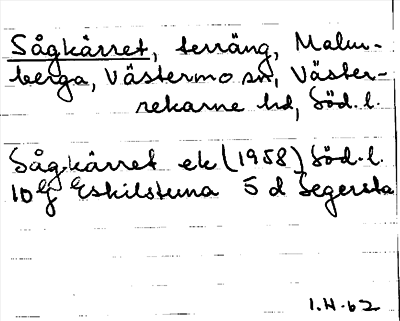 Sågkärret, terräng, Malm-
berga, Västermo sn, Väster-
rekarne hd, Söd. l.
Sågkärret ek (1958) Söd. l.
10 g Eskilstuna 5 d Segersta
1.H.62